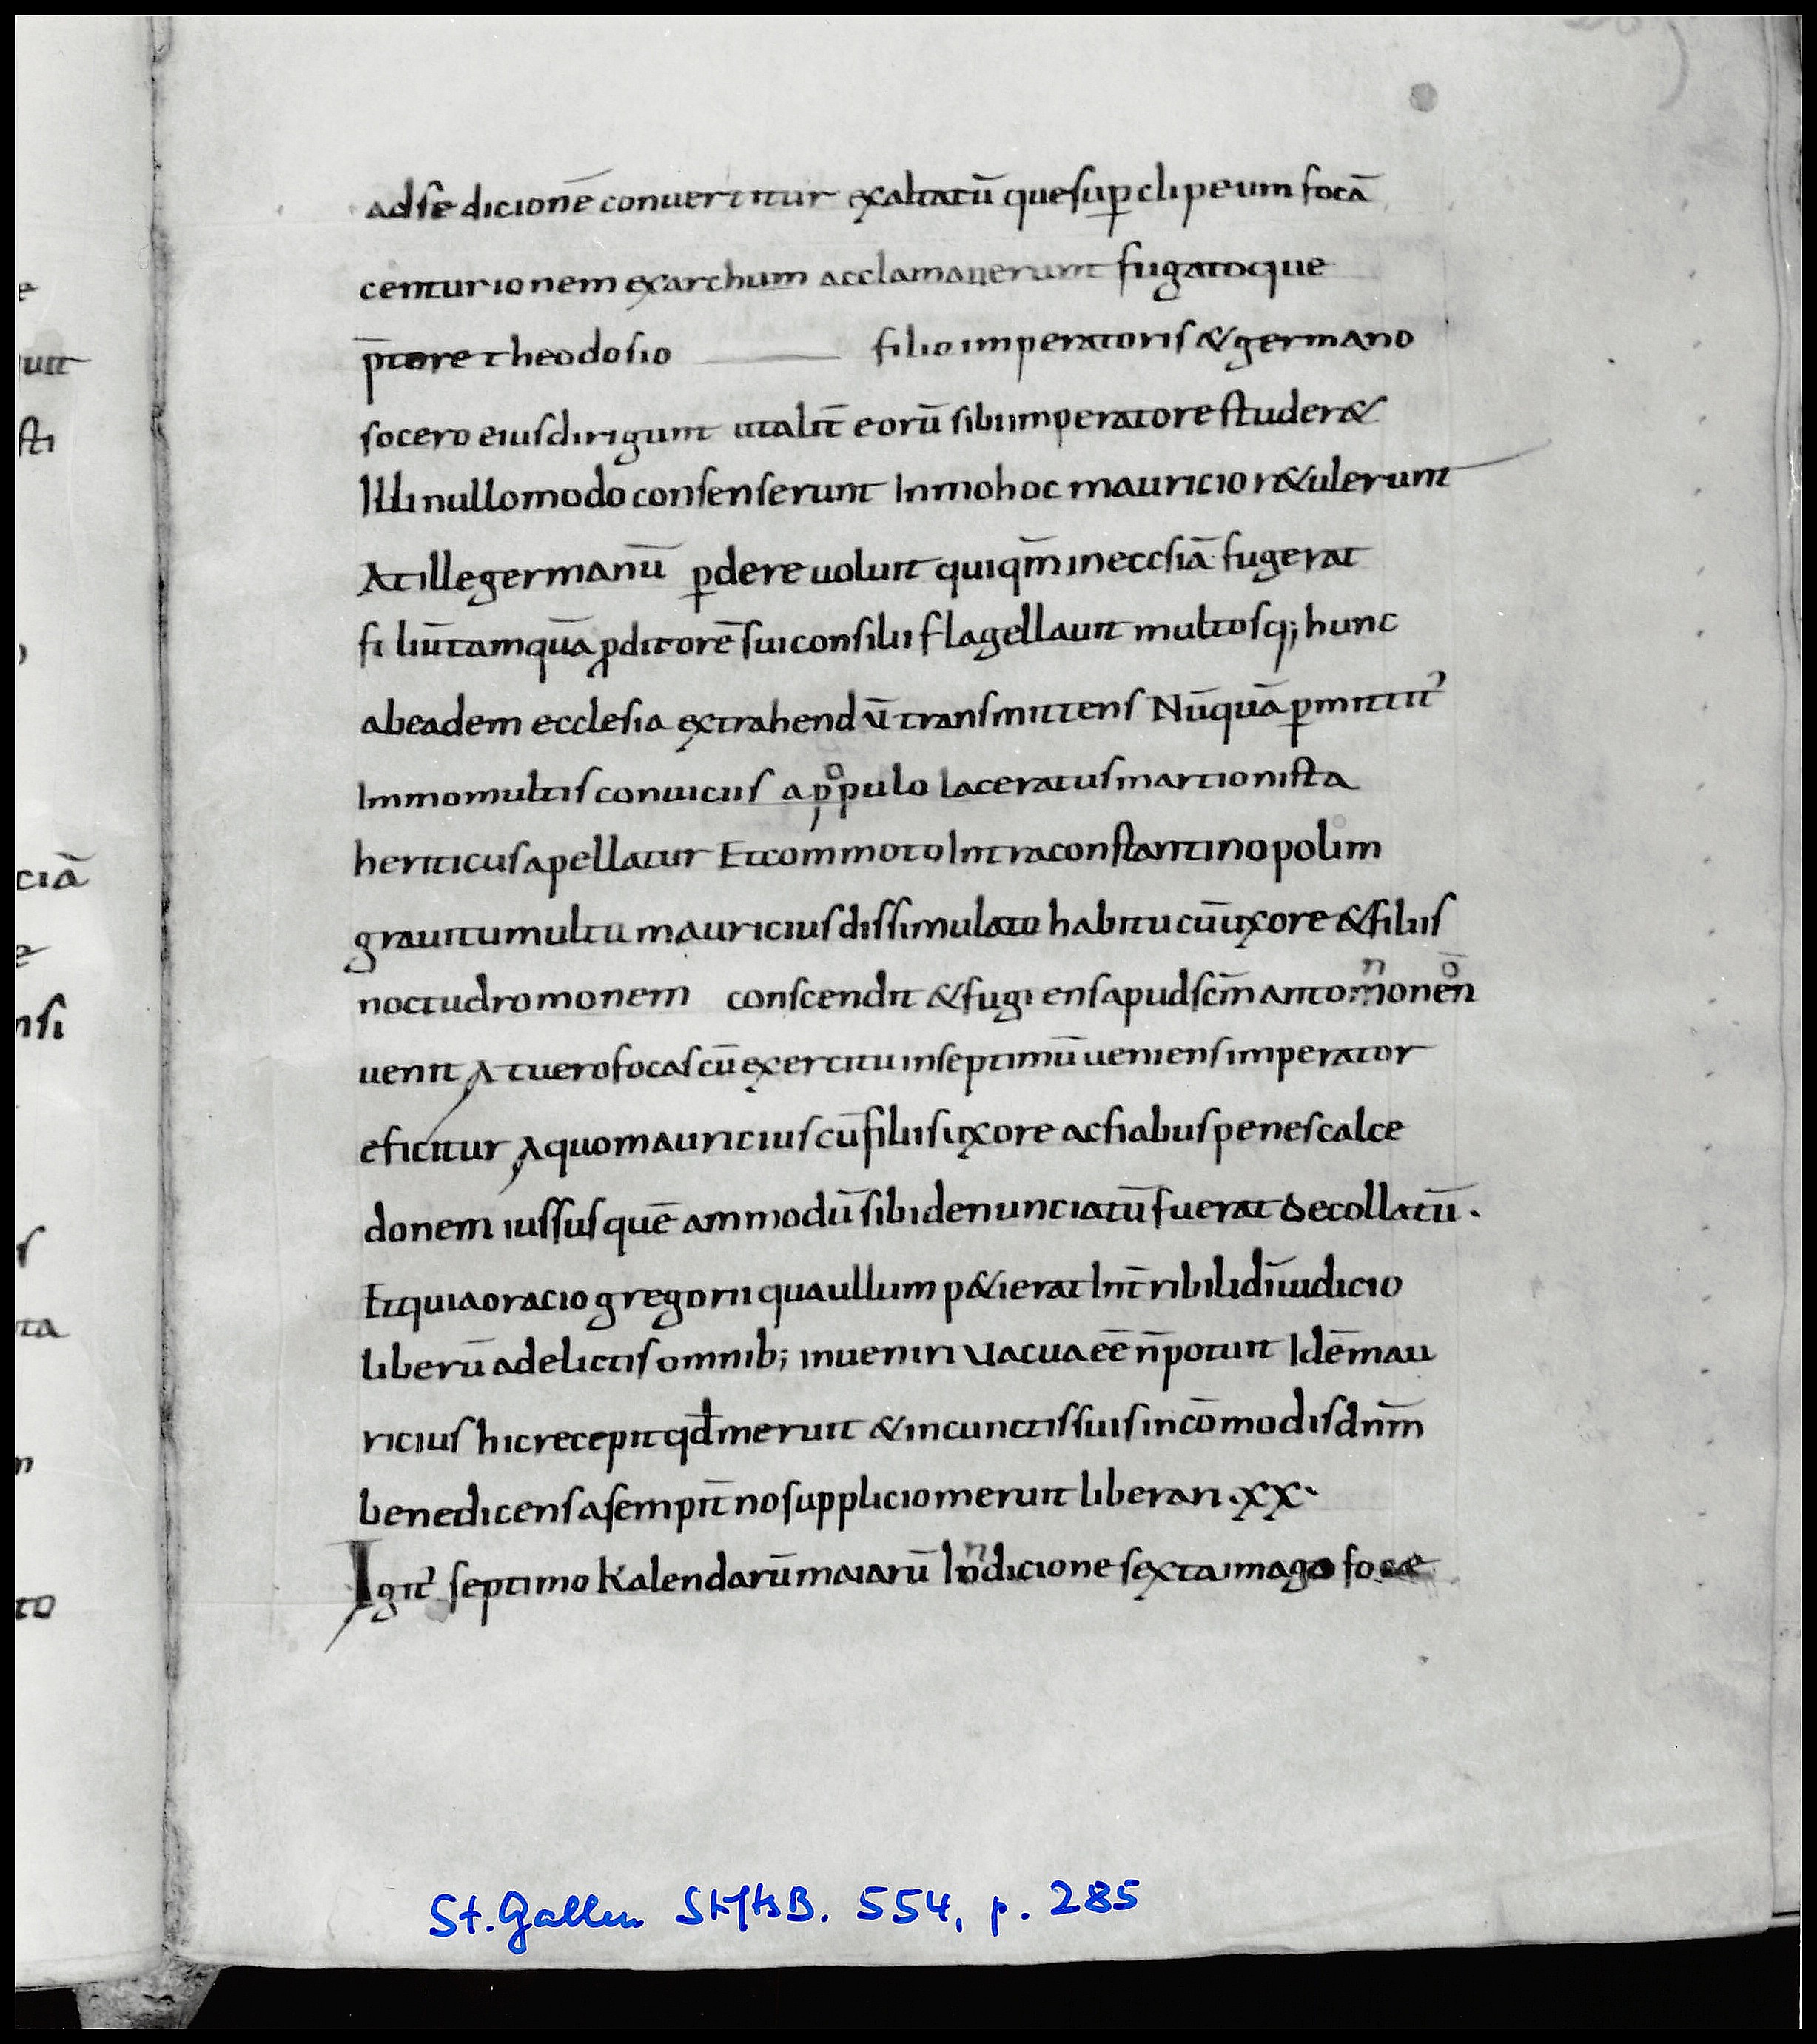 adsedicionē conuertitur exaltatū quesuꝑ clipeum focā
centurionem exarchum acclamauerunt fugatoque
p̄tore theodosio filio imperatoris &germano
socero eiusdirigunt utalit̄ eorū sibiimperatore studer&
Illi nullomodo consenserunt Inmohoc mauricio r&ulerunt
Atillegermanū ꝑdere uoluit quiqm̄ ineccsiā fugerat
filiūtamquā ꝓditorē suiconsilii flagellauit multosq; hunc
abeadem ecclesia extrahendū transmittens Nūquā ꝑmittit᾽
Immomultis conuiciis a popułlo laceratus martionista
heriticus apellatur Etcommoto Intraconstantinopolim
grauitumultu mauricius dissimulato habitu cūuxore &filiis
noctudromonem conscendit &fugiens apudscm̄ antomonen̄
n o
uenit Atuerofocas cū exercitu inseptimū ueniensimperator
eficitur Aquomauricius cū filiis uxore acfiabus penescalce
donem iussus quē ammodū sibidenunciatū fuerat decollatū.
Etquiaoracio gregorii quaullum p&ierat Int̄ribilidīiudicio
liberū adelictis omnib; inueniri Uacuaeē n̄potuit Idēmau
ricius hicrecepit qđmeruit &incunctissuis incōmodis dnm̄
benedicens asempit̄nosuppliciomeruit liberari .xx.
Igit᾽ septimo Kalendarūmaiarū Indicione sexta imago focae
e
uit
sti
ciā
e
nsi
ta
n
to
St. Gallen StiftsB. 554, p. 285